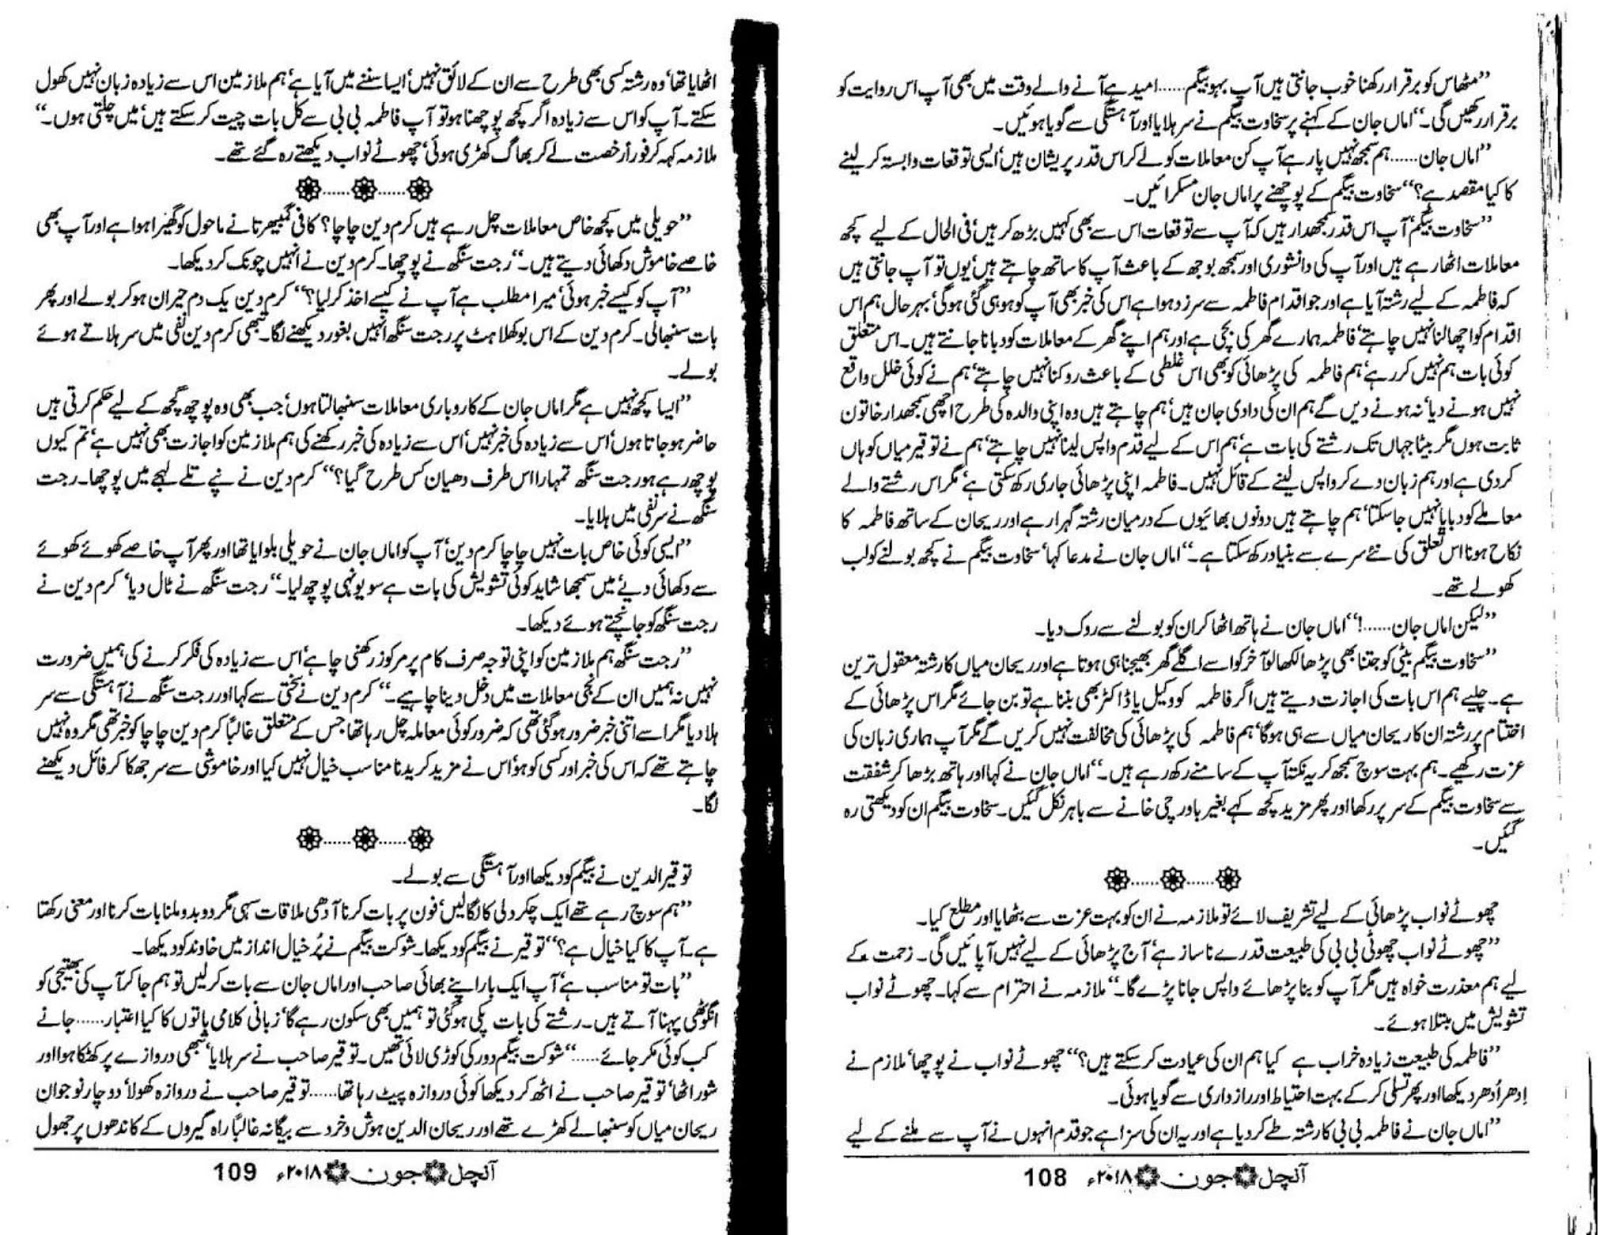 ”مٹھاس کو برقرار رکھنا خوب جانتی ہیں آپ بہو بیگم......امید ہے آنے والے وقت میں بھی آپ اس روایت کو
برقرار رکھیں گی۔“ اماں جان کے کہنے پر سخاوت بیگم نے سر ہلایا اور آہستگی سے گویا ہوئیں۔
”اماں جان......ہم سمجھ نہیں پا رہے آپ کن معاملات کو لے کر اس قدر پریشان ہیں‘ ایسی توقعات وابستہ کر لینے
کا کیا مقصد ہے؟“ سخاوت بیگم کے پوچھنے پر اماں جان مسکرائیں۔
”سخاوت بیگم‘ آپ اس قدر سمجھدار ہیں کہ آپ سے توقعات اس سے بھی کہیں بڑھ کر ہیں‘ فی الحال کے لیے کچھ
معاملات اٹھا رہے ہیں اور آپ کی دانشوری اور سمجھ بوجھ کے باعث آپ کا ساتھ چاہتے ہیں‘ یوں تو آپ جانتی ہیں
کہ فاطمہ کے لیے رشتہ آیا ہے اور جو اقدام فاطمہ سے سرزد ہوا ہے اس کی خبر بھی آپ کو ہو ہی گئی ہوگی‘ بہرحال ہم اس
اقدام کو اچھالنا نہیں چاہتے‘ فاطمہ ہمارے گھر کی بچی ہے اور ہم اپنے گھر کے معاملات کو دبانا جانتے ہیں۔ اس متعلق
کوئی بات ہم نہیں کر رہے‘ ہم فاطمہ کی پڑھائی کو بھی اس غلطی کے باعث روکنا نہیں چاہتے‘ ہم نے کوئی خلل واقع
نہیں ہونے دیا‘ نہ ہونے دیں گے ہم ان کی دادی جان ہیں‘ ہم چاہتے ہیں وہ اپنی والدہ کی طرح اچھی سمجھدار خاتون
ثابت ہوں مگر بیٹا جہاں تک رشتے کی بات ہے‘ ہم اس کے لیے قدم واپس لینا نہیں چاہتے‘ ہم نے توقیر میاں کو ہاں
کر دی ہے اور ہم زبان دے کر واپس لینے کے قائل نہیں۔ فاطمہ اپنی پڑھائی جاری رکھ سکتی ہے‘ مگر اس رشتے والے
معاملے کو دبایا نہیں جا سکتا‘ ہم چاہتے ہیں دونوں بھائیوں کے درمیان رشتہ گہرا رہے اور ریحان کے ساتھ فاطمہ کا
نکاح ہونا اس تعلق کی نئے سرے سے بنیاد رکھ سکتا ہے۔“ اماں جان نے مدعا کہا‘ سخاوت بیگم نے کچھ بولنے کو لب
کھولے تھے۔
”لیکن اماں جان......!“ اماں جان نے ہاتھ اٹھا کر ان کو بولنے سے روک دیا۔
”سخاوت بیگم بیٹی کو جتنا بھی پڑھا لکھا لو آخر کو اسے اگلے گھر بھیجنا ہی ہوتا ہے اور ریحان میاں کا رشتہ معقول ترین
ہے۔ چلیے ہم اس بات کی اجازت دیتے ہیں اگر فاطمہ کو وکیل یا ڈاکٹر بھی بننا ہے تو بن جائے مگر اس پڑھائی کے
اختتام پر رشتہ ان کا ریحان میاں سے ہی ہوگا‘ ہم فاطمہ کی پڑھائی کی مخالفت نہیں کریں گے مگر آپ ہماری زبان کی
عزت رکھیے۔ ہم بہت سوچ سمجھ کر یہ نکتا آپ کے سامنے رکھ رہے ہیں۔“ اماں جان نے کہا اور ہاتھ بڑھا کر شفقت
سے سخاوت بیگم کے سر پر رکھا اور پھر مزید کچھ کہے بغیر باورچی خانے سے باہر نکل گئیں۔ سخاوت بیگم ان کو دیکھتی رہ
گئیں۔
چھوٹے نواب پڑھائی کے لیے تشریف لائے تو ملازمہ نے ان کو بہت عزت سے بٹھایا اور مطلع کیا۔
”چھوٹے نواب چھوٹی بی بی کی طبیعت قدرے ناساز ہے‘ آج پڑھائی کے لیے نہیں آ پائیں گی۔ زحمت کے
لیے ہم معذرت خواہ ہیں مگر آپ کو بنا پڑھائے واپس جانا پڑے گا۔“ ملازمہ نے احترام سے کہا۔ چھوٹے نواب
تشویش میں مبتلا ہوئے۔
”فاطمہ کی طبیعت زیادہ خراب ہے کیا ہم ان کی عیادت کر سکتے ہیں؟“ چھوٹے نواب نے پوچھا‘ ملازم نے
اِدھر اُدھر دیکھا اور پھر تسلی کر کے بہت احتیاط اور رازداری سے گویا ہوئی۔
”اماں جان نے فاطمہ بی بی کا رشتہ طے کر دیا ہے اور یہ ان کی سزا ہے جو قدم انہوں نے آپ سے ملنے کے لیے
آنچل جون ۲۰۱۸ء 108
اٹھایا تھا‘ وہ رشتہ کسی بھی طرح سے ان کے لائق نہیں‘ ایسا سننے میں آیا ہے‘ ہم ملازمین اس سے زیادہ زبان نہیں کھول
سکتے۔ آپ کو اس سے زیادہ اگر کچھ پوچھنا ہو تو آپ فاطمہ بی بی سے کل بات چیت کر سکتے ہیں‘ میں چلتی ہوں۔“
ملازمہ کہہ کر فوراً رخصت لے کر بھاگ کھڑی ہوئی‘ چھوٹے نواب دیکھتے رہ گئے تھے۔
”حویلی میں کچھ خاص معاملات چل رہے ہیں کرم دین چاچا؟ کافی گمبھیرتا نے ماحول کو گھیرا ہوا ہے اور آپ بھی
خاصے خاموش دکھائی دیتے ہیں۔“ رجت سنگھ نے پوچھا۔ کرم دین نے انہیں چونک کر دیکھا۔
”آپ کو کیسے خبر ہوئی‘ میرا مطلب ہے آپ نے کیسے اخذ کر لیا؟“ کرم دین یک دم حیران ہو کر بولے اور پھر
بات سنبھالی۔ کرم دین کے اس بوکھلاہٹ پر رجت سنگھ انہیں بغور دیکھنے لگا۔ تبھی کرم دین نفی میں سر ہلاتے ہوئے
بولے۔
”ایسا کچھ نہیں ہے مگر اماں جان کے کاروباری معاملات سنبھالتا ہوں‘ جب بھی وہ پوچھ گچھ کے لیے حکم کرتی ہیں
حاضر ہو جاتا ہوں‘ اس سے زیادہ کی خبر نہیں‘ اس سے زیادہ کی خبر رکھنے کی ہم ملازمین کو اجازت بھی نہیں ہے‘ تم کیوں
پوچھ رہے ہو رجت سنگھ تمہارا اس طرف دھیان کس طرح گیا؟“ کرم دین نے نپے تلے لہجے میں پوچھا۔ رجت
سنگھ نے سر نفی میں ہلایا۔
”ایسی کوئی خاص بات نہیں چاچا کرم دین‘ آپ کو اماں جان نے حویلی بلوایا تھا اور پھر آپ خاصے کھوئے کھوئے
سے دکھائی دیے‘ میں سمجھا شاید کوئی تشویش کی بات ہے سو یونہی پوچھ لیا۔“ رجت سنگھ نے ٹال دیا‘ کرم دین نے
رجت سنگھ کو جانچتے ہوئے دیکھا۔
”رجت سنگھ ہم ملازمین کو اپنی توجہ صرف کام پر مرکوز رکھنی چاہیے‘ اس سے زیادہ کی فکر کرنے کی ہمیں ضرورت
نہیں نہ ہمیں ان کے نجی معاملات میں دخل دینا چاہیے۔“ کرم دین نے سختی سے کہا اور رجت سنگھ نے آہستگی سے سر
ہلا دیا مگر اسے اتنی خبر ضرور ہو گئی تھی کہ ضرور کوئی معاملہ چل رہا تھا جس کے متعلق غالباً کرم دین چاچا کو خبر تھی مگر وہ نہیں
چاہتے تھے کہ اس کی خبر اور کسی کو ہو‘ اس نے مزید کریدنا مناسب خیال نہیں کیا اور خاموشی سے سر جھکا کر فائل دیکھنے
لگا۔
توقیر الدین نے بیگم کو دیکھا اور آہستگی سے بولے۔
”ہم سوچ رہے تھے ایک چکر دلی کا لگا لیں‘ فون پر بات کرنا آدھی ملاقات سہی مگر دوبدو ملنا بات کرنا اور معنی رکھتا
ہے۔ آپ کا کیا خیال ہے؟“ توقیر نے بیگم کو دیکھا۔ شوکت بیگم نے پُر خیال انداز میں خاوند کو دیکھا۔
”بات تو مناسب ہے‘ آپ ایک بار اپنے بھائی صاحب اور اماں جان سے بات کر لیں تو ہم جا کر آپ کی بھتیجی کو
انگوٹھی پہنا آتے ہیں۔ رشتے کی بات پکی ہو گئی تو ہمیں بھی سکون رہے گا‘ زبانی کلامی باتوں کا کیا اعتبار......جانے
کب کوئی مکر جائے......“ شوکت بیگم دور کی کوڑی لائی تھیں۔ توقیر صاحب نے سر ہلایا‘ تبھی دروازے پر کھٹکا ہوا اور
شور اٹھا‘ توقیر صاحب نے اٹھ کر دیکھا کوئی دروازہ پیٹ رہا تھا......توقیر صاحب نے دروازہ کھولا‘ دو چار نوجوان
ریحان میاں کو سنبھالے کھڑے تھے اور ریحان الدین ہوش و خرد سے بیگانہ غالباً راہ گیروں کے کاندھوں پر جھول
آنچل جون ۲۰۱۸ء 109